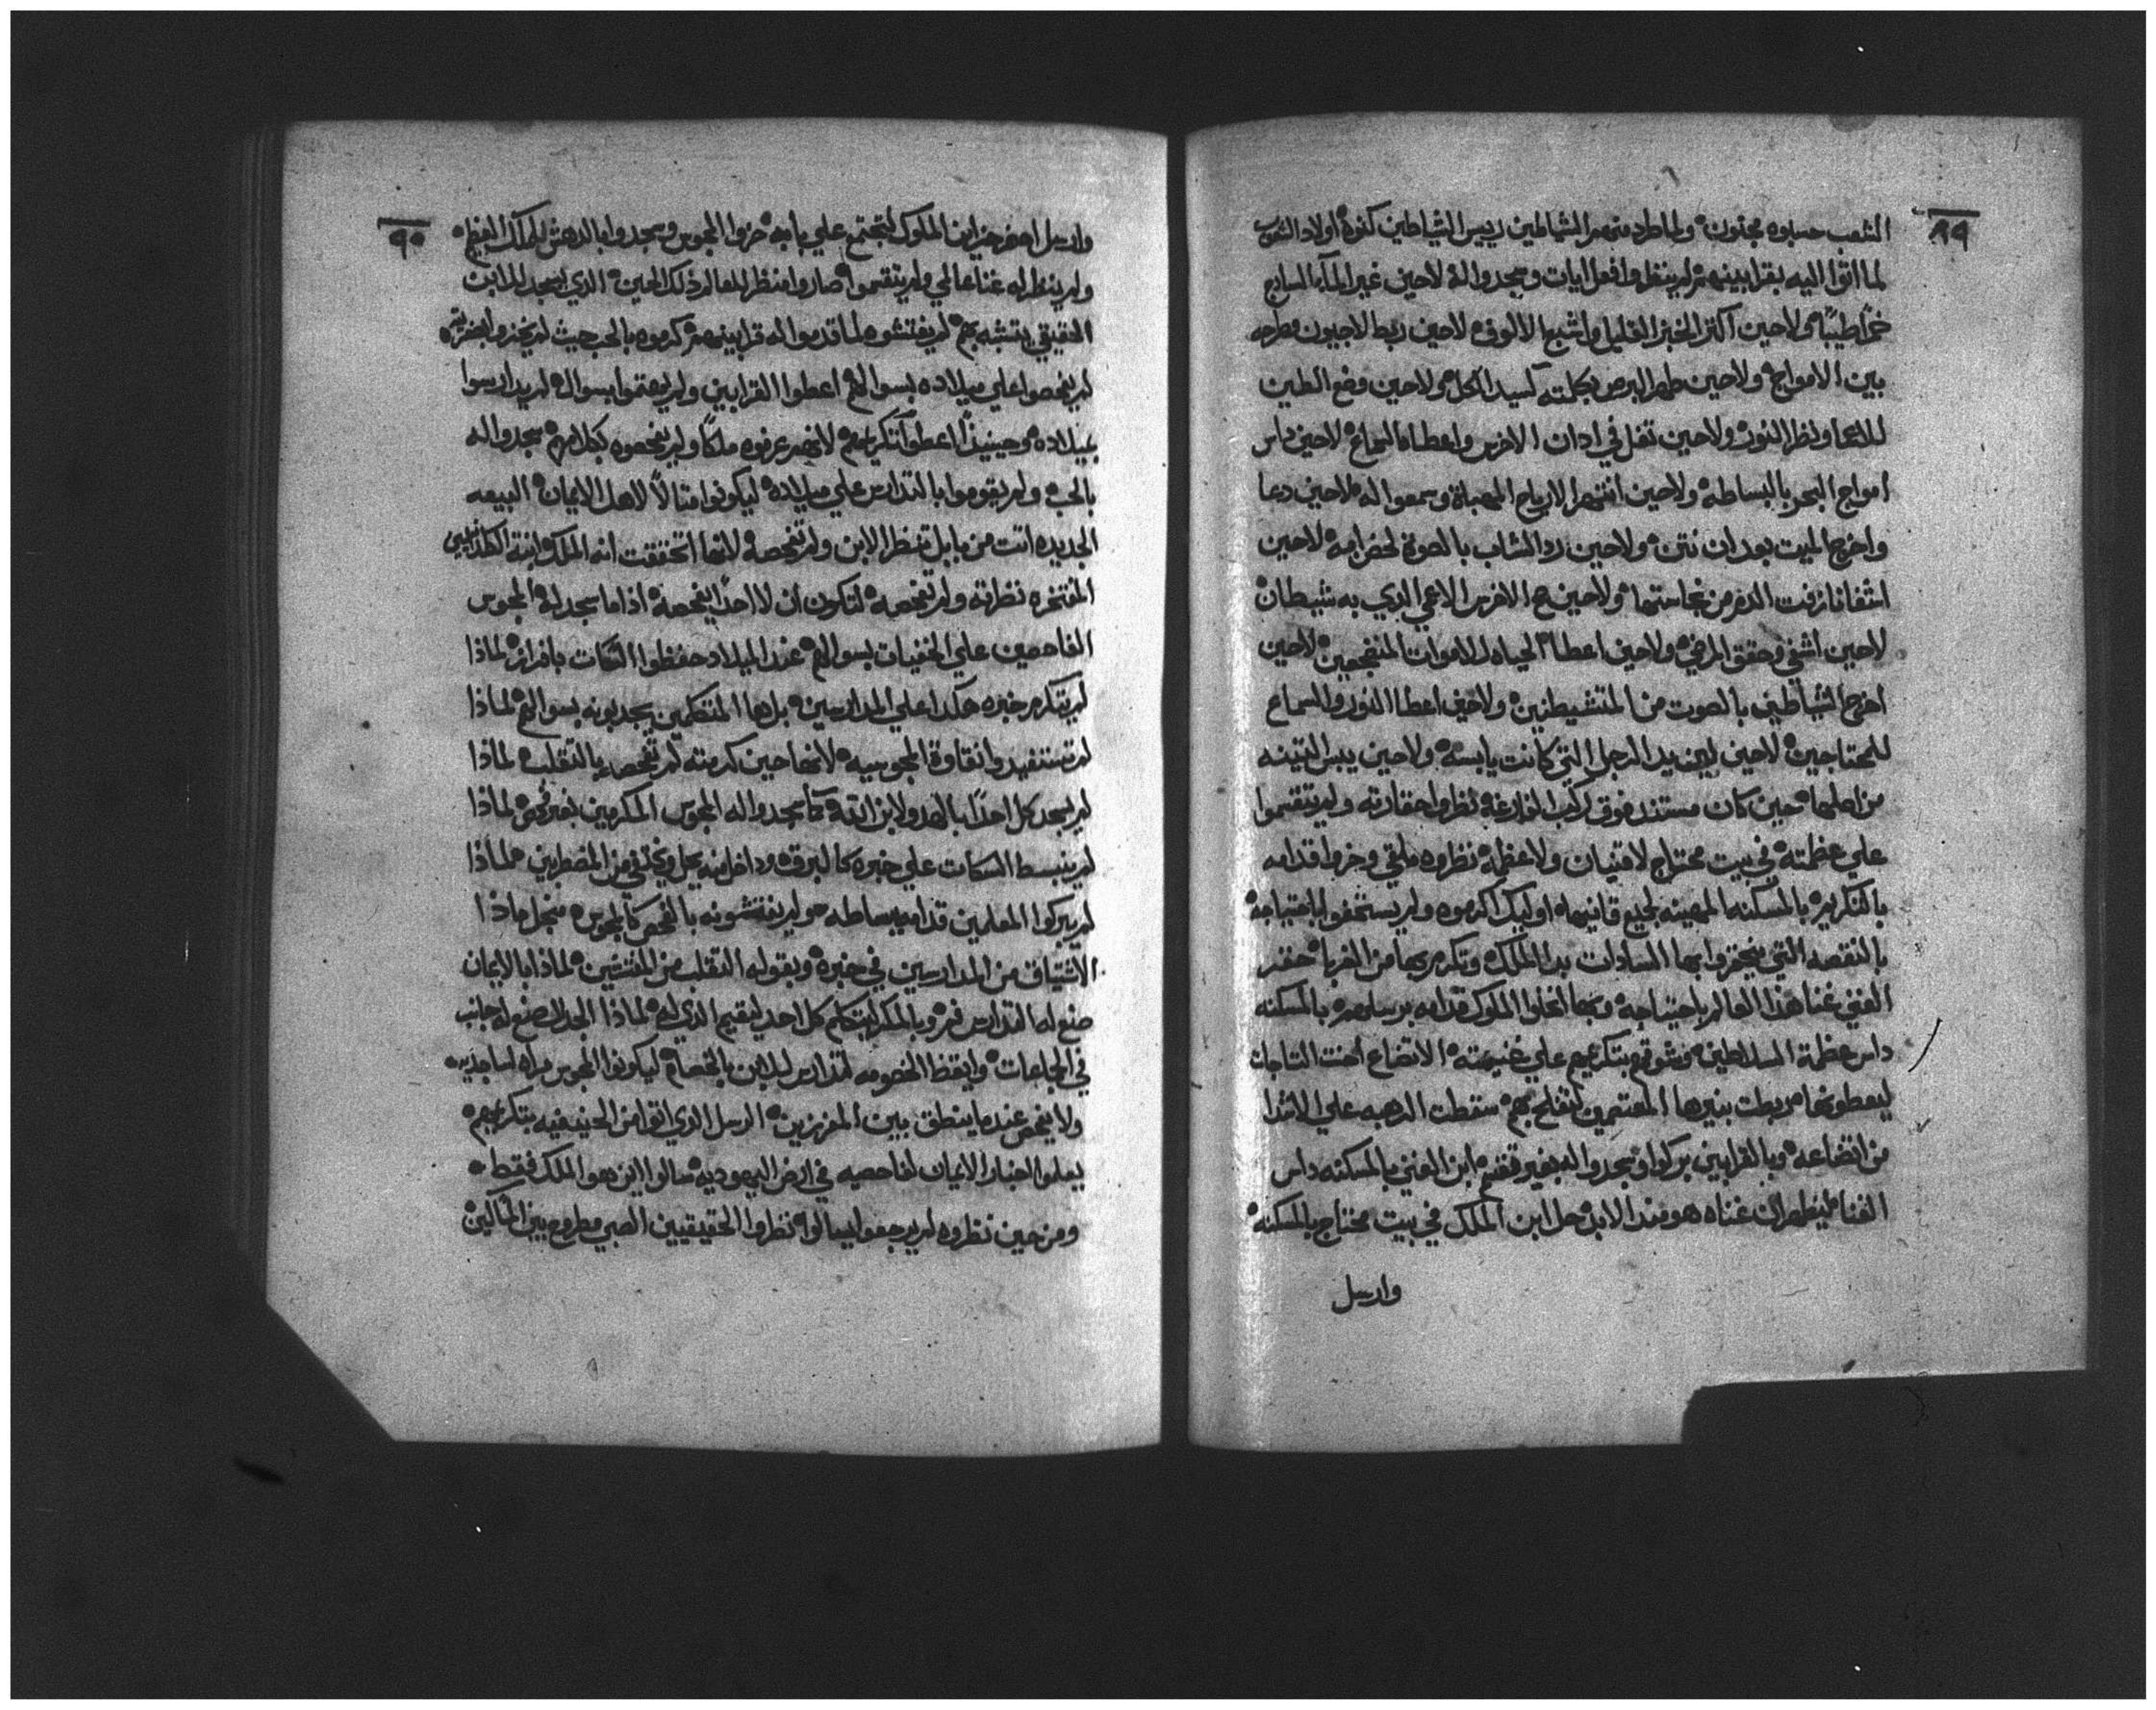 ٨٩
الشعب حسبوه مجنون ولما طرد منهم الشياطين رييس الشياطين كنوه اولاد الشعوب
لما اتوا اليه بقرابينهم لم ينظروا فعل ايات وسجدوا له لاحين غير المآء السايح
خمراً طيباً ولاحين اكثر الخبز القليل واشبع الالوف لاحين ربط الاجيون وطرحه
بين الامواج ولاحين طهر البرص بكلمته لسيد الكل ولاحين وضع الطين
للاعما ونظر النور ولاحين تفل في ادان الاخرس واعطاه السماع لاحين داس
امواج البحر بالبساطه ولاحين انتهر الارياح المهباة وسمعوا له لاحين دعا
واخرج الميت بعد ان نتن ولاحين رد الشاب بالصوت لحضن امه لاحين
اشفا نازفت الدم من نجاستها ولاحين الاخرس الاعمي الدي به شيطان
لاحين اشفي وحقق المرضي ولاحين اعطا الحياه للاموات المنضجعين لاحين
اخرج الشياطين بالصوت من المتشيطنين ولاحين اعطا النور والسماع
للمحتاجين لاحين يد الرجل التي كانت يابسه ولاحين يبس التينه
من اصلها حين كان مستند فوق ركب نظروا حقارته ولم يتقسموا
علي عظمته في بيت محتاج لا قنيان ولا عظمه نظروه ملقي وخروا قدامه
بالتكريم بالمسكنه المهينه لجميع قانيها اوليك اكرموه ولم يستخفوا باحتياجه
بالنقصه التي يحقروا بها السادات بدا الملك وتكرم بها من الغربا حقر
الغني غنا هذا العالم باحتياجه وبها انحلوا الملوك قدامه برسلهم بالمسكنه
داس عظمة السلاطين وشوقهم بتكريمهم علي غنيمته الاتضاع احنت التاجات
ليعطونها ربطت بنيرها المعتمين لتفلح بهم سقطت الرهبه علي الاشدا
من اتضاعه وبالقرابين بركوا وسجدوا له بغير ابن الغني بالمسكنه داس
الغنا ليظهر ان غناه هو منذ الابد حل ابن الملك في بيت محتاج بالمسكنه
وارسل
٩٠
وارسل احضر خزاين الملوك لتجتمع علي بابه خروا المجوس وسجدوا بالدهش للملك العظيم
ولم ينظر له غنا عالمي ولم يتقسموا صاروا منظر للعالم ذلك الحين الدي يسجد للابن
الحقيقي يتشبه بهم لم يفتشوه لما قدموا له قرابينهم كرموه بالحب حيث لم
لم يفحصوا علي ميلاده بسوالهم اعطوا القرابين ولم يهتموا بسوال لم يدارسوا
بميلاده وحينيذٍ اعطوا تكريمهم لانهم عرفوه ملكاً ولم يفحصوه بكلامهم سجدوا له
بالحب ولم يقوموا بالتدارس علي ميلاده ليكونوا متالاً لاهل الايمان البيعه
الجديده اتت من بابل تنظر الابن ولم تفحصه لانها اتحققت انه الملك ابنة الكلدانيين
المفتخره نظرته ولم تفحصه لتكون ان لا احداً يفحصه اذا ما سجد له المجوس
الفاحصين علي الخفيات بسوالهم عند الميلاد حفظوا السكات بافراز لماذا
لم يتكرم خبره هكدا علي المدارسين بل ها المتكلمين يجدبونه بسوالهم لماذا
لم تستفيدوا نقاوة المجوسيه لانها حين كرمته لم تفحص بالتقلب لماذا
لم يسجد كل احداً بالهدو لابن الله كما سجدوا له المجوس المكرمين بغير فحص لماذا
لم ينبسط السكات علي خبره كالبرقه وداخل منه يجل ويختفي من المضطربين لماذا
لم يبركوا المعلمين قدامه ببساطه ولم يفتشونه بالفحص كالمجوس من اجل ماذا
الاشتياق من المدارسين في خبره وبقوله التقلب من المفتشين لماذا بالايمان
صنع له التدارس فم وبالمكر ليتكلم كل احد ليقيم الدي له لماذا الجدال صنع له جانب
في الجماعات وايقظ الخصومه لتدارس الابن بالخصام ليكونوا المجوس مراه لساجديه
ولا يفحص عندما ينطق بين المفرزين الرسل الدي اتوا من الحنيفيه بتكريمهم
يعلموا اخبار الايمان لفاحصيه في ارض اليهوديه سالوا اين هو الملك فقط
ومن حين نظروه لم يرجعوا ليسالوا نظروا الحقيقيين الصبي مطروح بين المآكين